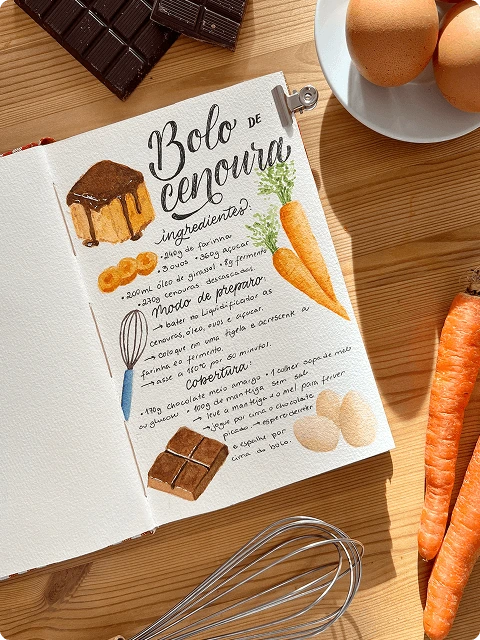 Bolo DE
cenoura
ingredientes:
• 240g de farinha
• 3 ovos • 360g açucar
• 200ml óleo de girassol • 8g fermento
• 270g cenouras descascadas
Modo de preparo:
→ bater no liquidificador as
cenouras, óleo, ovos e açucar.
→ coloque em uma tigela e acrescente a
farinha e o fermento.
→ asse a 180°C por 50 minutos.
Cobertura:
• 170g chocolate meio amargo • 1 colher sopa de mel
ou glucose • 100g de manteiga sem sal.
→ leve a manteiga e o mel para ferver
→ jogue por cima o chocolate
picado → espere derreter
e espalhe por
cima do bolo.